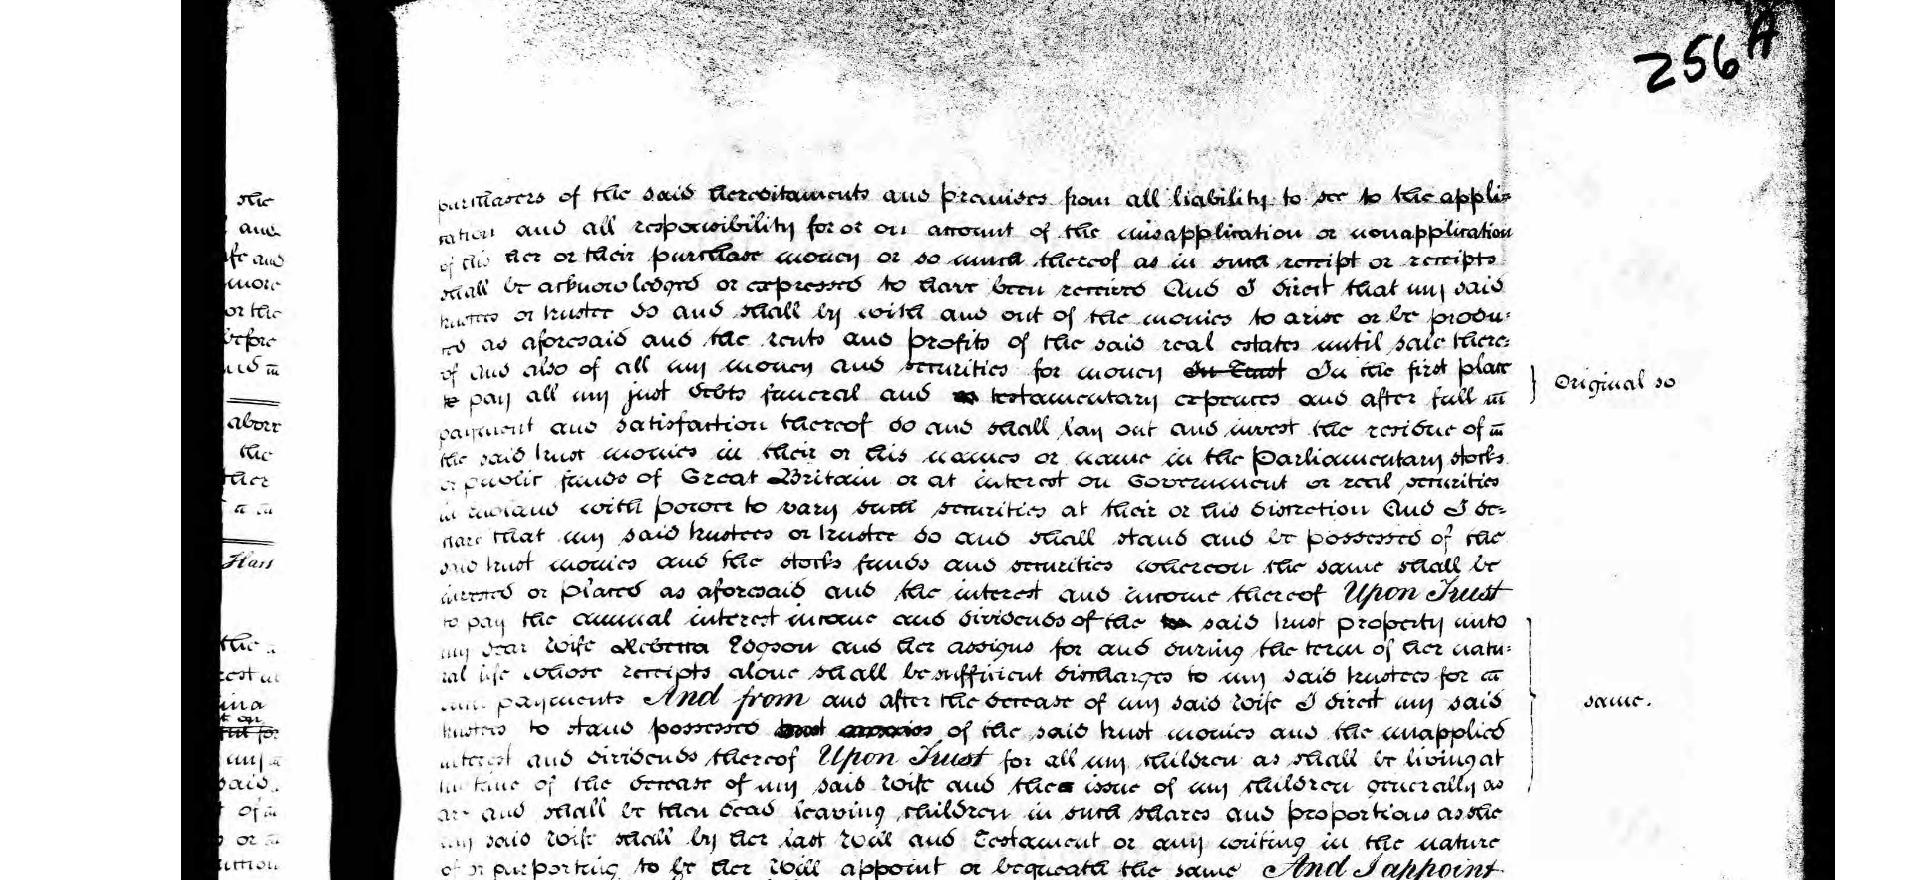 256 A
purchasers of the said hereditaments and premises from all liability to see to the appli=
cation and all responsibility for or on account of the misapplication or nonapplication
of his her or their purchase money or so much thereof as in such receipt or receipts
shall be acknowledged or expressed to have been received And I direct that my said
trustees or trustee do and shall by with and out of the monies to arise or be produ=
ced as aforesaid and the rents and profits of the said real estates until sale there=
of And also of all my money and securities for money In Trust In the first place
to pay all my just debts funeral and testamentary expences and after full
payment and satisfaction thereof do and shall lay out and invest the residue of
the said trust monies in their or his names or name in the Parliamentary stocks
or public funds of Great Britain or at interest on Government or real securities
in England with power to vary such securities at their or his discretion And I de=
clare that my said trustees or trustee do and shall stand and be possessed of the
said trust monies and the stocks funds and securities whereon the same shall be
invested or placed as aforesaid and the interest and income thereof Upon Trust
to pay the annual interest income and dividends of the said trust property unto
my dear Wife Rebecca Edgson and her assigns for and during the term of her natu=
ral life whose receipts alone shall be sufficient discharges to my said trustees for
such payments And from and after the decease of my said Wife I direct my said
trustees to stand possessed of the said trust monies and the unapplied
interest and dividends thereof Upon Trust for all my children as shall be living at
the time of the decease of my said Wife and the issue of my children generally as
are and shall be then dead leaving children in such shares and proportions as she
my said Wife shall by her last Will and Testament or any writing in the nature
of or purporting to be her Will appoint or bequeath the same And I appoint
Original so
same.
she
and
more
or the
before
above
the